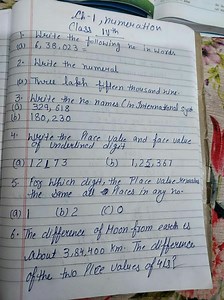 Ch-1, Numeration
Class IVth
1- Write the following no in words
(a) 6,38,023 =
2- Write the numeral
(a) Three lakh fifteen thousand nine
3- Write the no names (in International System
(a) 329,618
(b) 180,230
4- Write the Place value and face value
of underlined digit
(a) 12173 (b) 1,25,367
5- For Which digit, the Place value remains
the same all Places in any no.
(a) 1 (b) 2 (c) 0
6- The difference of Moon from earth is
about 3,84,400 km. The difference
of the two Place values of 4is?